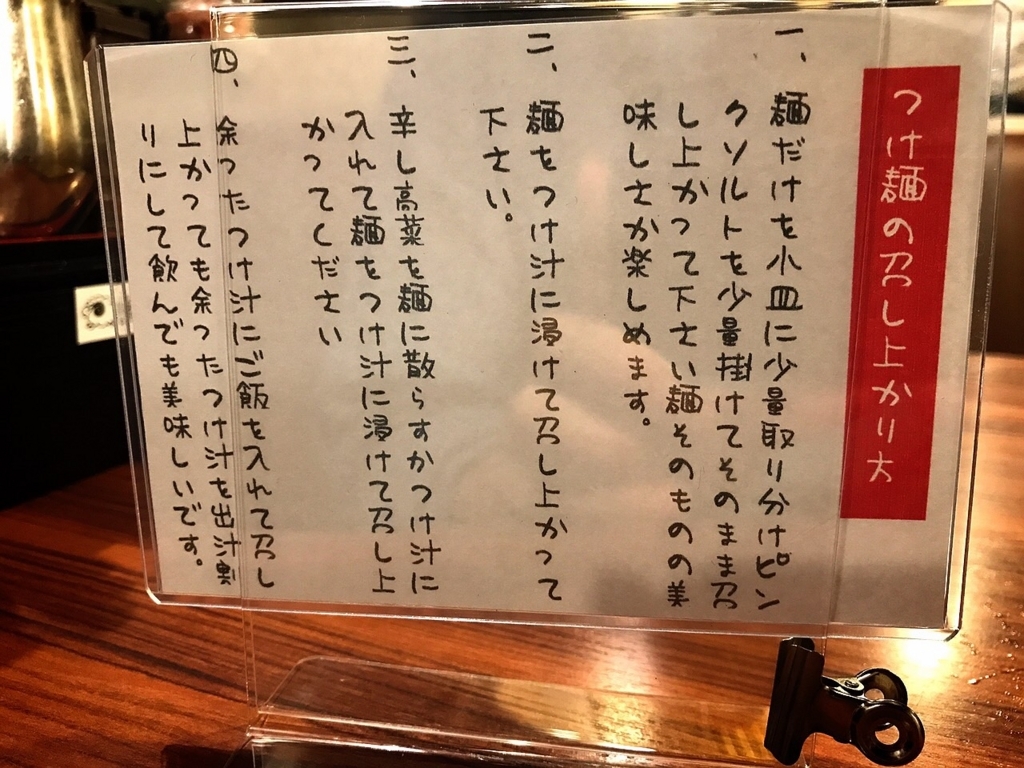 つけ麺の召し上かり方
一、麺だけを小皿に少量取り分けピン
クソルトを少量掛けてそのまま召
し上かって下さい麺そのものの美
味しさか楽しめます。
二、麺をつけ汁に浸けて召し上かって
下さい。
三、辛し高菜を麺に散らすかつけ汁に
入れて麺をつけ汁に浸けて召し上
かってください
四、余ったつけ汁にご飯を入れて召し
上かっても余ったつけ汁を出汁割
りにして飲んでも美味しいです。